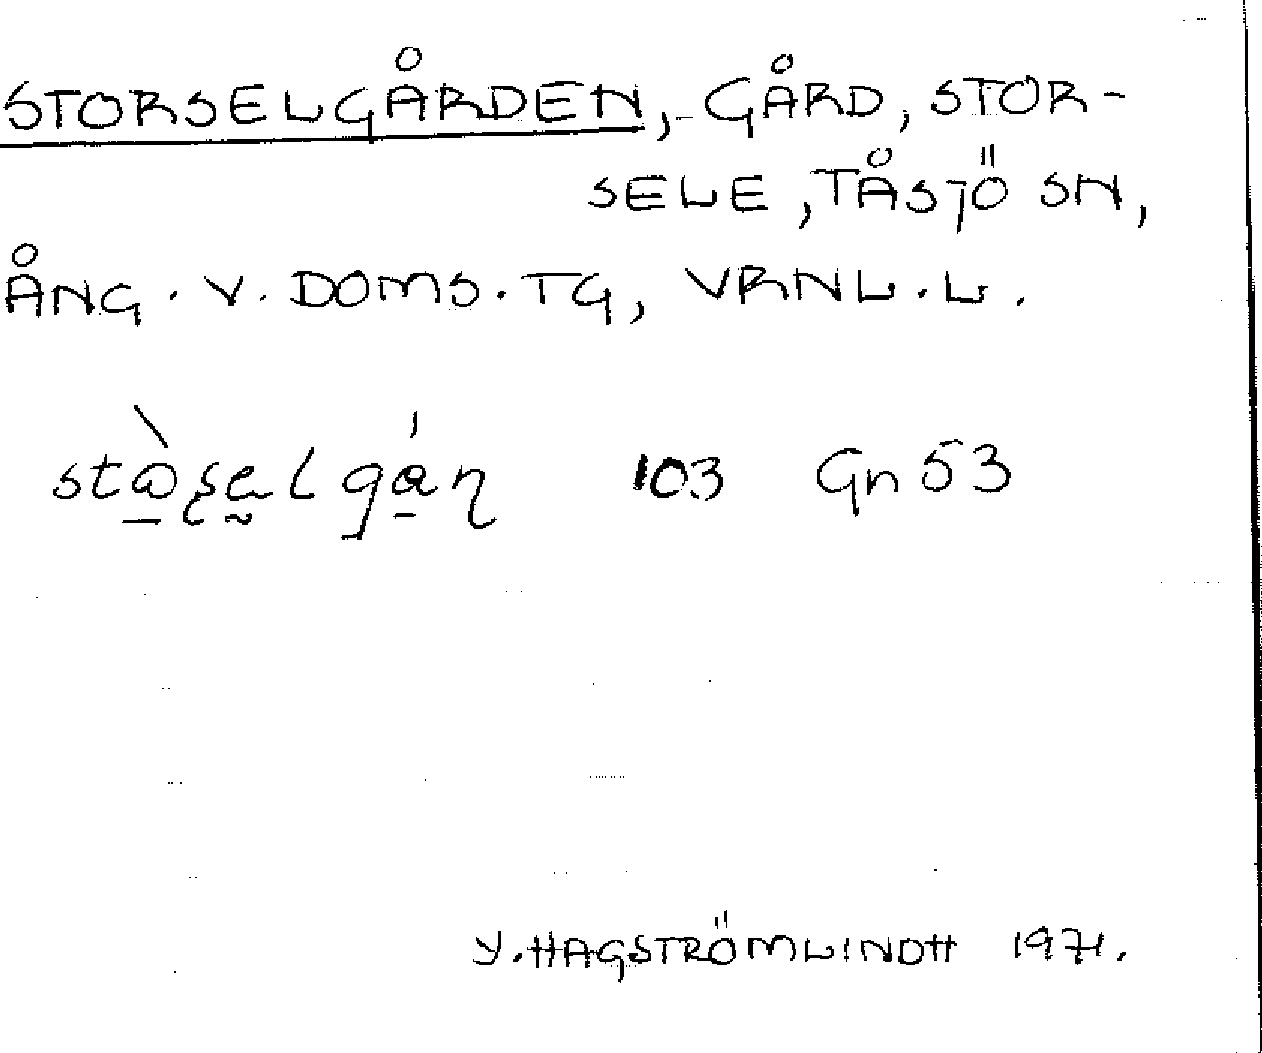 STORSELGÅRDEN, GÅRD, STOR-
SELE, TÅSJÖ SN,
ÅNG. V. DOMS.TG, VRNL.L.
103 Gn 53
Y. HAGSTRÖMLINDH 1971.